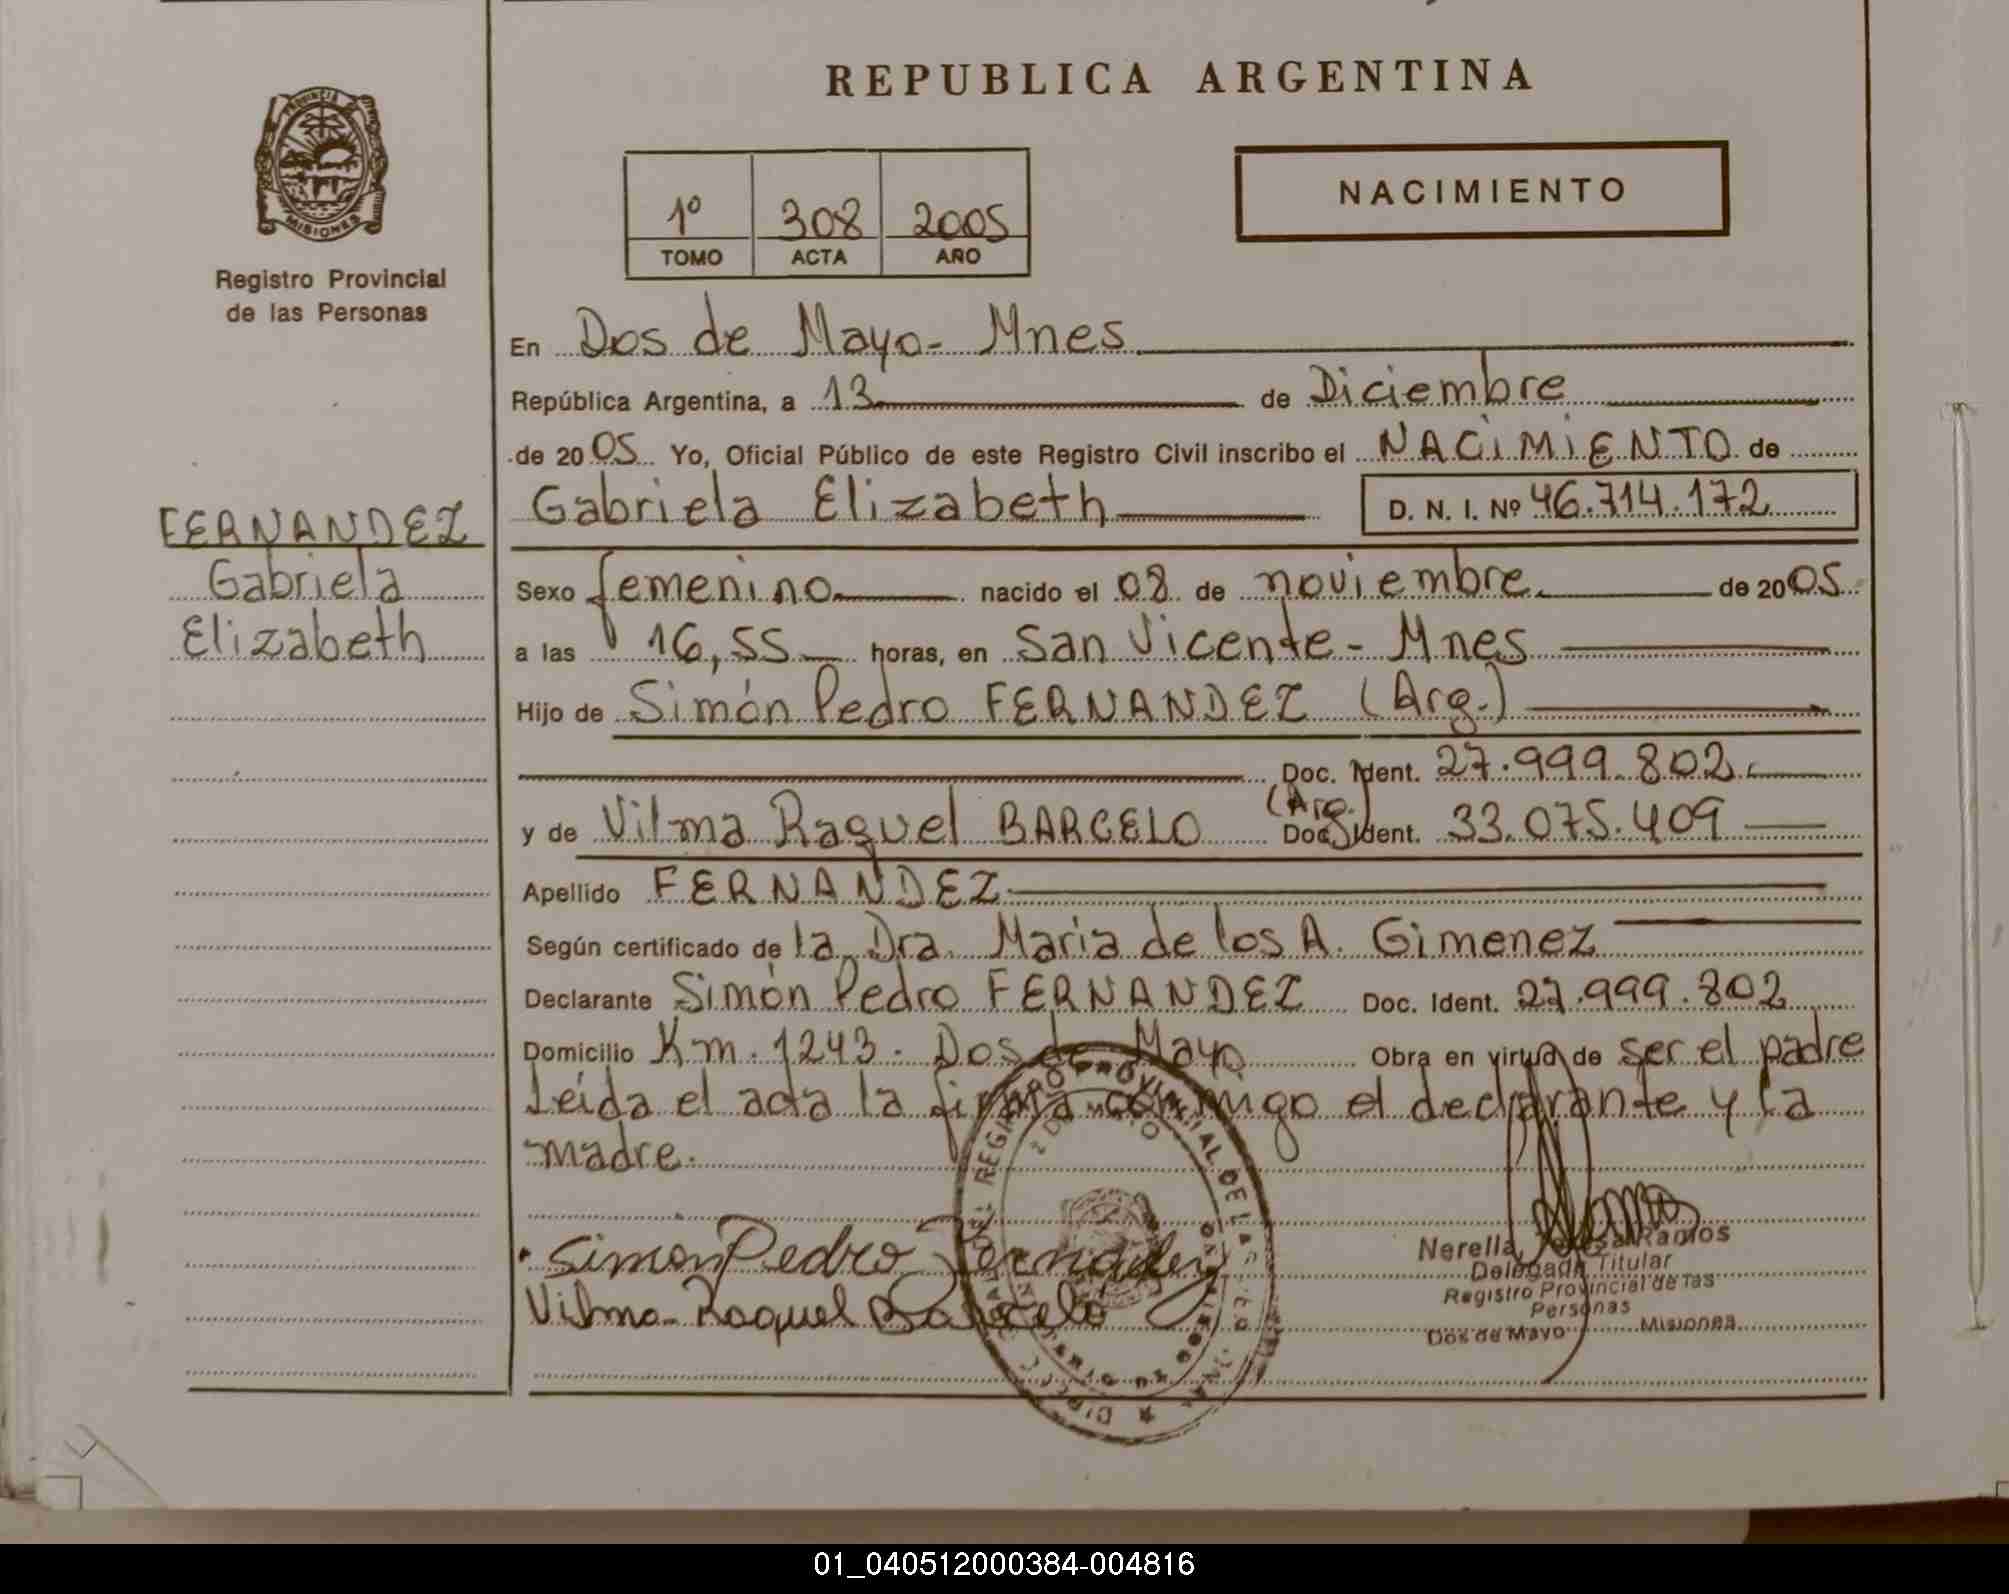 REPUBLICA ARGENTINA
PROVINCIA DE
MISIONES
Registro Provincial
de las Personas
1º 308 2005
TOMO ACTA AÑO
NACIMIENTO
En Dos de Mayo - Mnes
República Argentina, a 13 de Diciembre
de 2005 Yo, Oficial Público de este Registro Civil inscribo el NACIMIENTO de
Gabriela Elizabeth D. N. I. Nº 46.714.172
FERNANDEZ
Gabriela
Elizabeth
Sexo femenino nacido el 08 de noviembre de 2005
a las 16,55 horas, en San Vicente - Mnes
Hijo de Simón Pedro FERNANDEZ (Arg.)
Doc. Ident. 27.999.802
y de Vilma Raquel BARCELO (Arg.) Doc. Ident. 33.075.409
Apellido FERNANDEZ
Según certificado de la Dra. Maria de los A. Gimenez
Declarante Simón Pedro FERNANDEZ Doc. Ident. 27.999.802
Domicilio Km. 1243 - Dos de Mayo Obra en virtud de ser el padre
Leída el acta la firma conmigo el declarante y la
madre.
REGISTRO PROVINCIAL DE LAS
Simon Pedro Fernandez
Vilma Raquel Barcelo
Nerella Ramos
Delegada Titular
Registro Provincial de las
Personas
Dos de Mayo Misiones
01_040512000384-004816